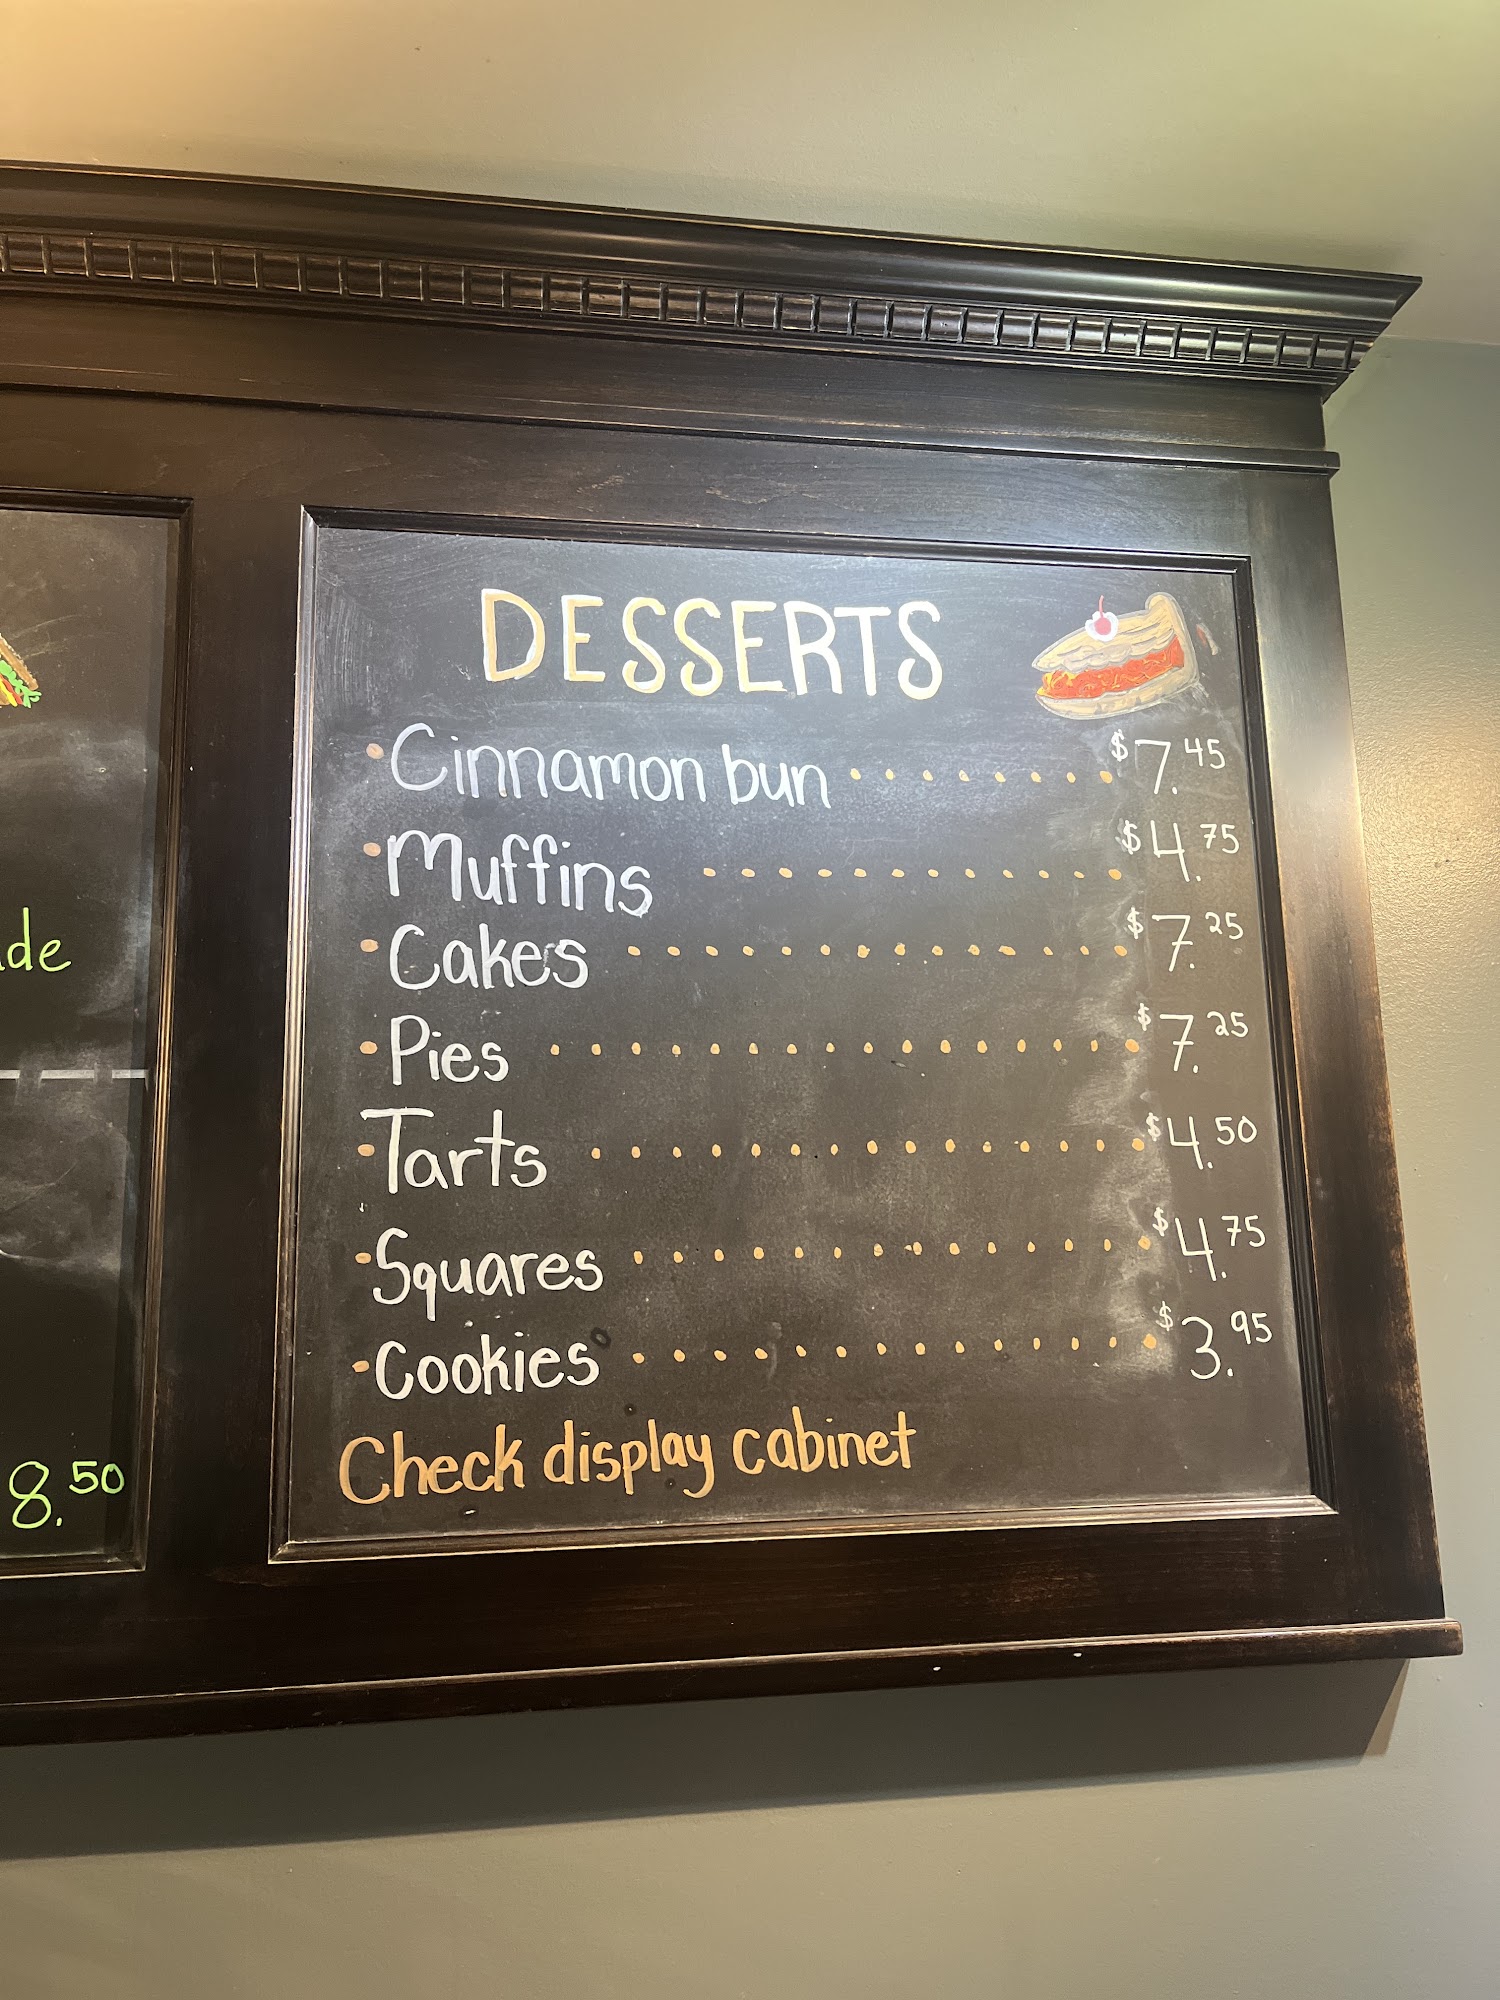 DESSERTS
• Cinnamon bun ········ $7.45
• Muffins ············ $4.75
• Cakes ·············· $7.25
• Pies ················ $7.25
• Tarts ··············· $4.50
• Squares ·············· $4.75
• Cookies ·············· $3.95
Check display cabinet
8.50